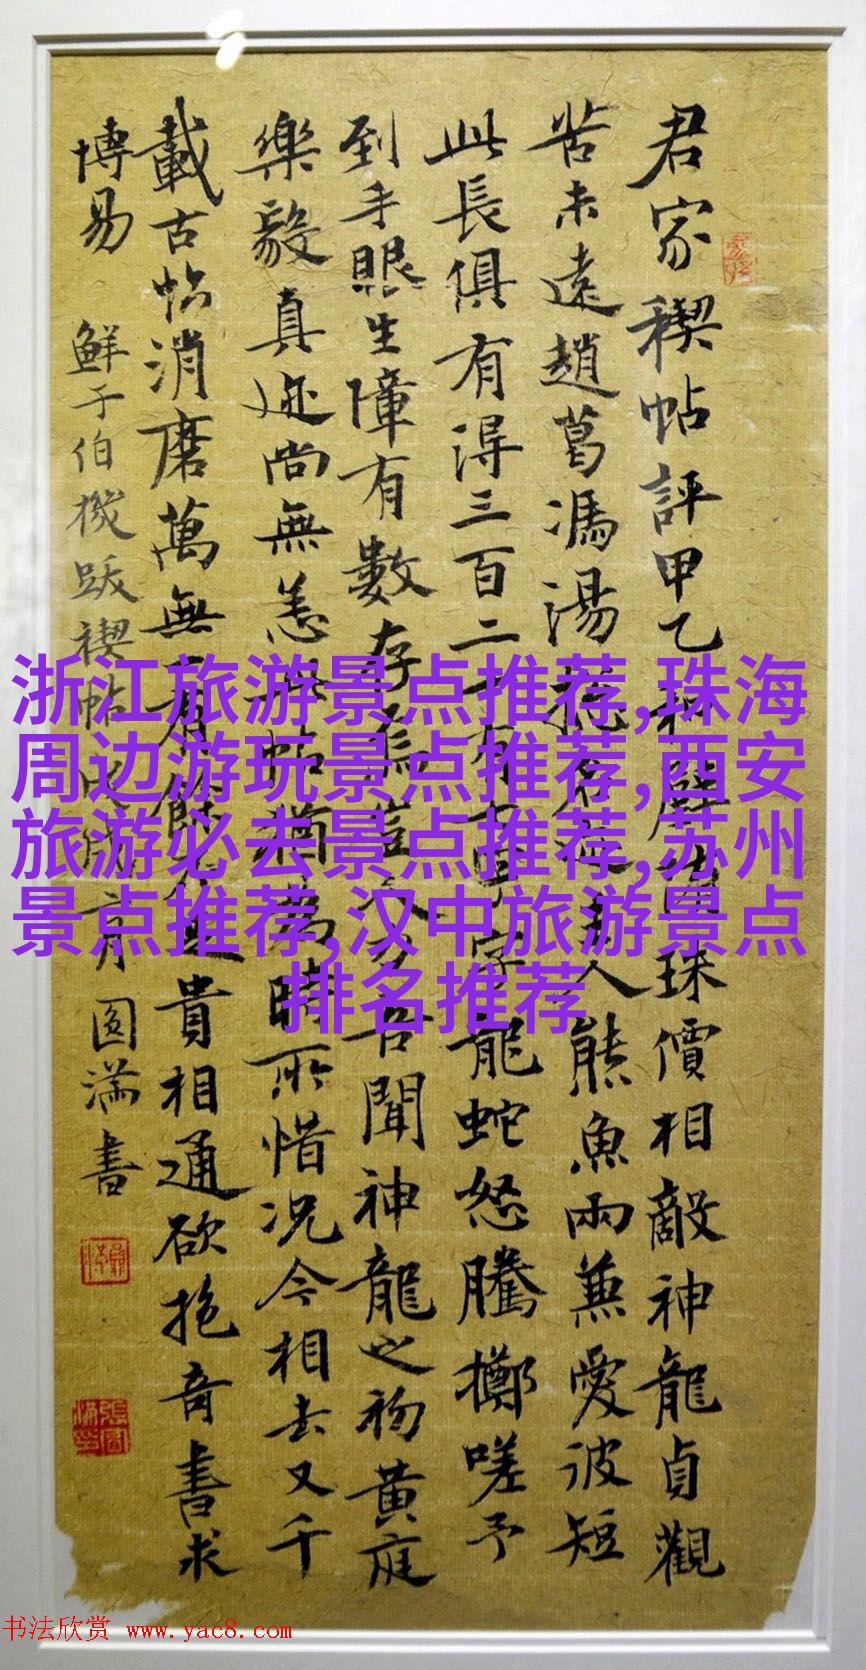 君家稧帖評甲乙和璧隋珠價相敵神龍貞觀
苦未遠趙葛馮湯拓名人熊魚兩兼愛彼短
此長俱有得三百二十有七字字龍蛇怒騰擲嗟予
到手眼生障有數存焉豈人吾聞神龍之初黃庭
樂毅真迹尚無恙此帖猶為時所惜況今相去又千
載古帖消磨萬無一有餘不足貴相通欲抱奇書求
博易
鮮于伯機跋禊帖戊戌
圆满書
浙江旅游景点推荐,珠海
周边游玩景点推荐,西安
旅游必去景点推荐,苏州
景点推荐,汉中旅游景点
排名推荐
书法欣赏 www.yac8.com